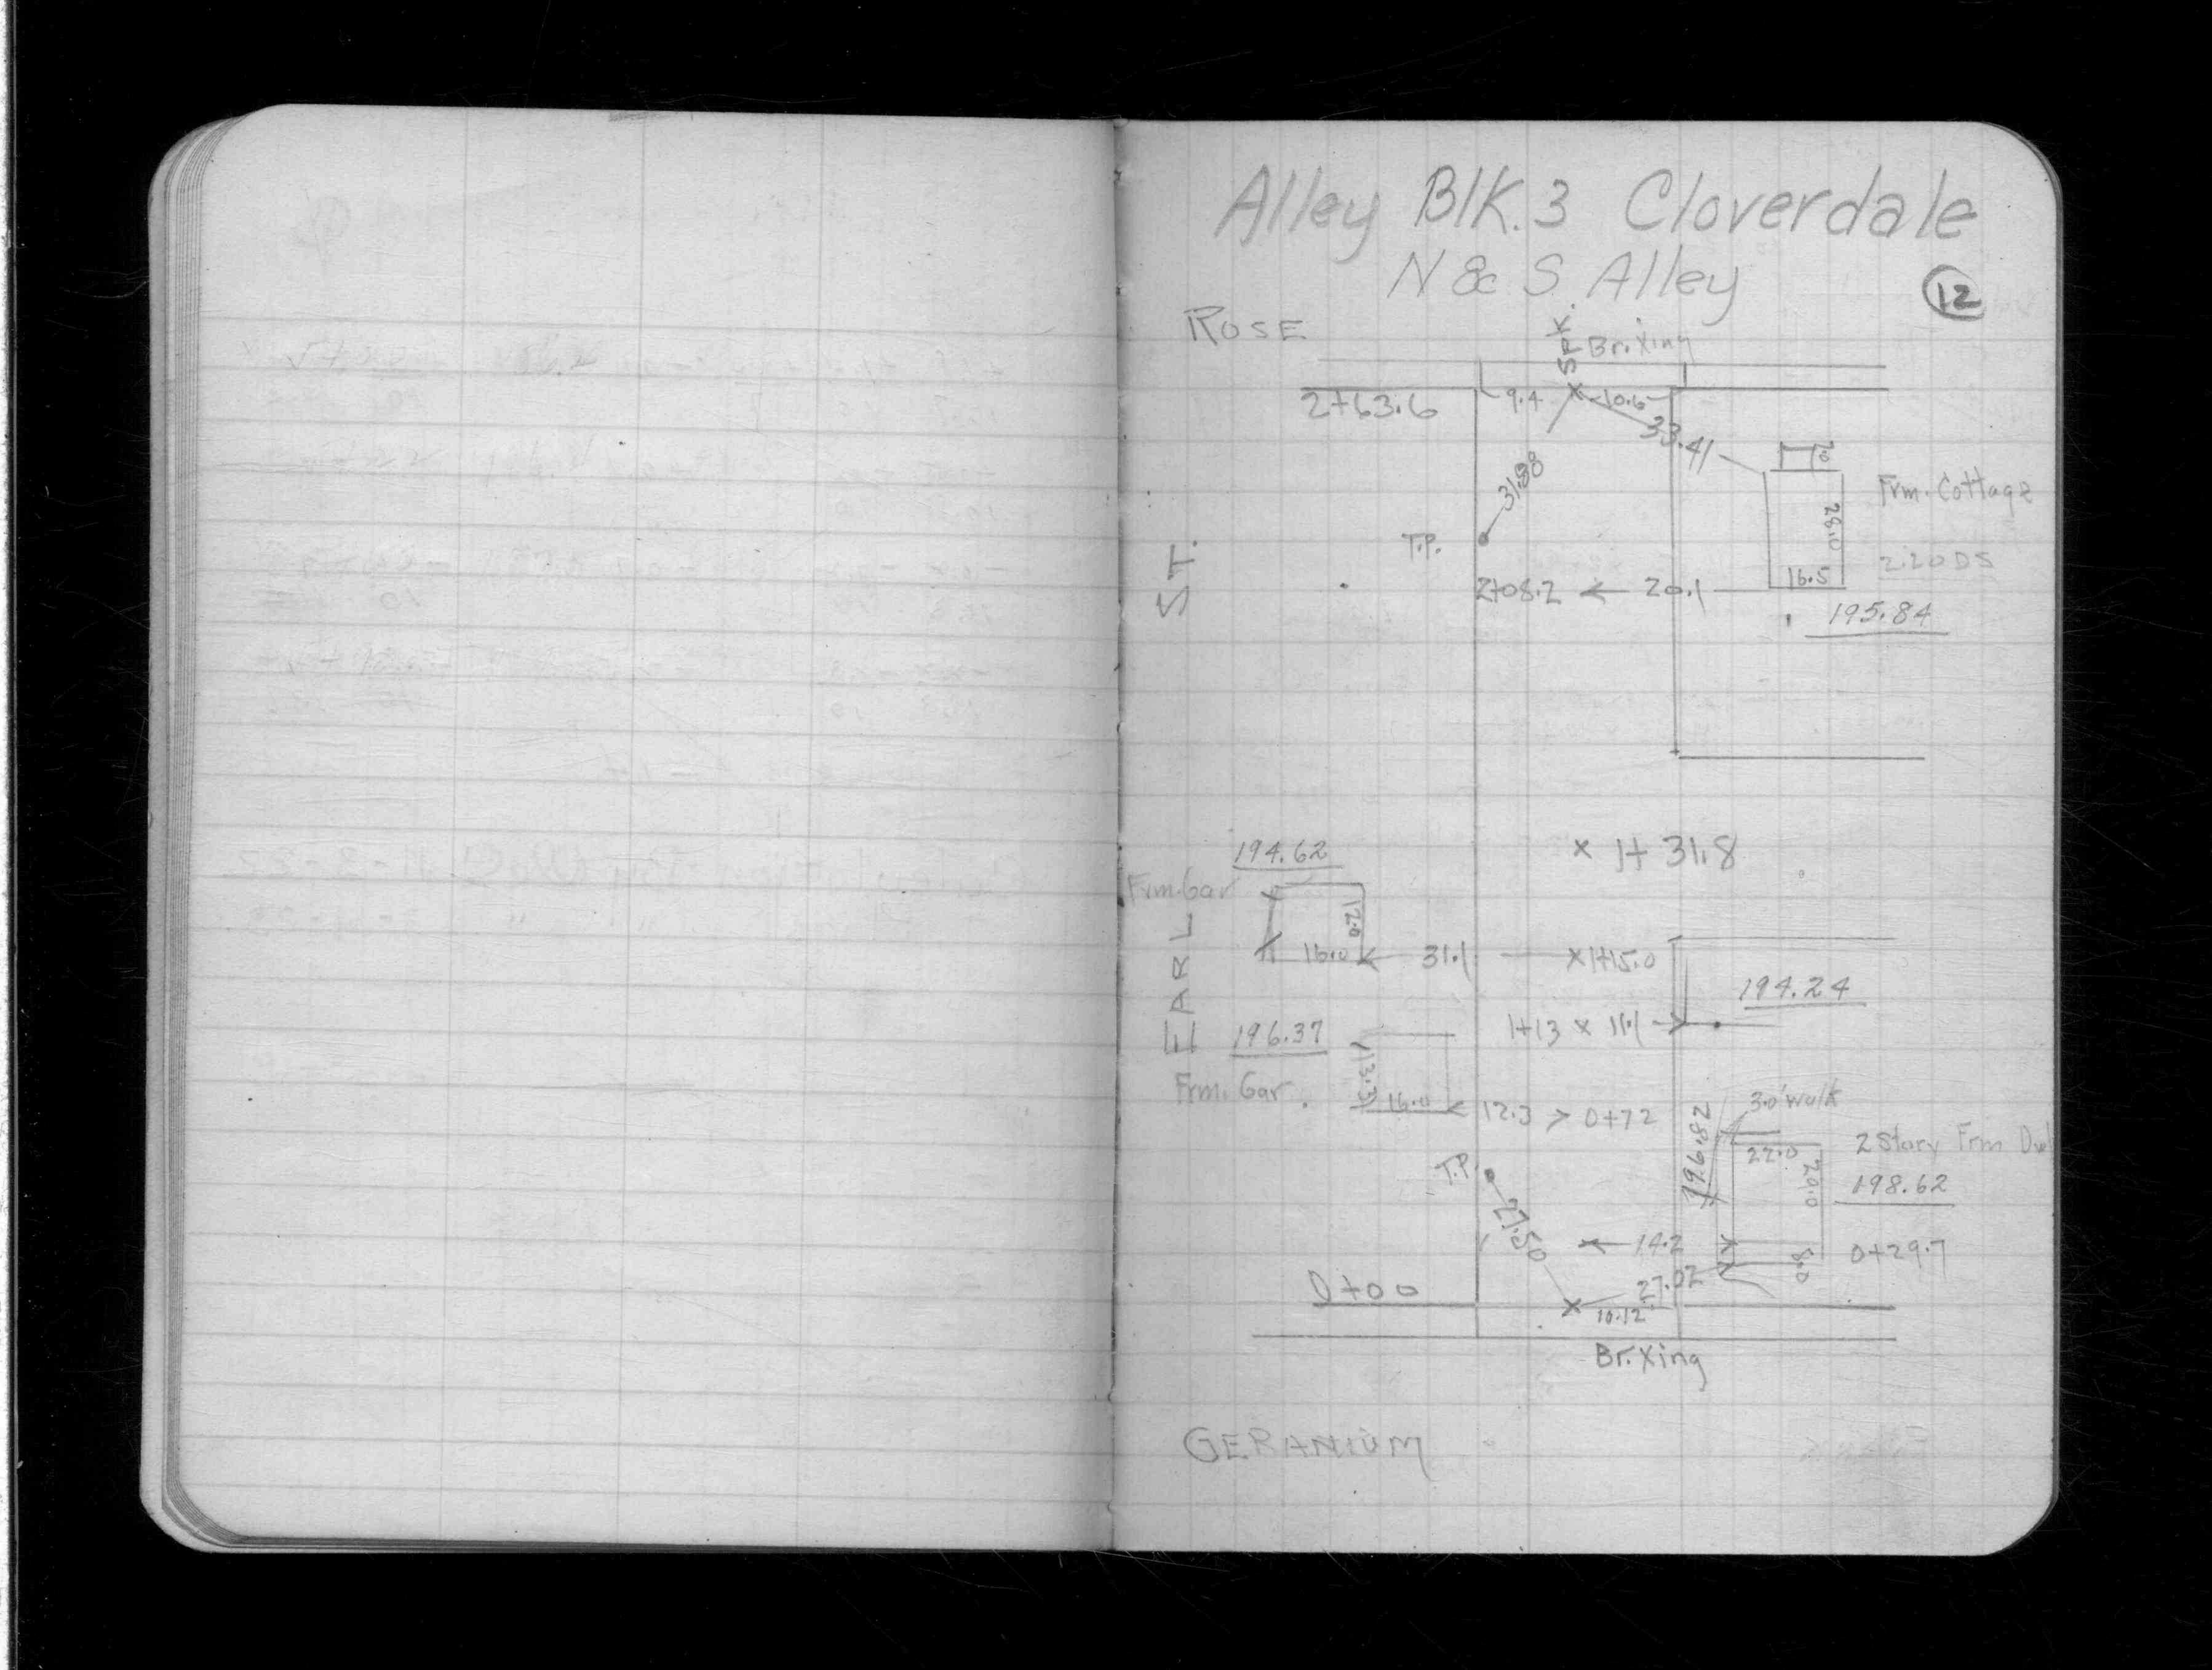 Alley Blk. 3 Cloverdale
N & S. Alley
12
ROSE
SPK.
Br. Xing
2+63.6
9.4
10.6
33.41
31.88
7.0
Frm. Cottage
28.0
T.P.
2.20 DS
16.5
2+08.2
20.1
195.84
ST.
1+31.8
194.62
Frm. Gar
12.0
16.0
31.1
1+15.0
194.24
EARL
196.37
1+13
11.1
13.3
Frm. Gar.
16.0
12.3
0+72
3.0' Walk
196.82
2 Story Frm Dwl
22.0
T.P.
20.0
198.62
27.50
14.2
8.0
0+29.7
27.02
0+00
10.12
Br. Xing
GERANIUM